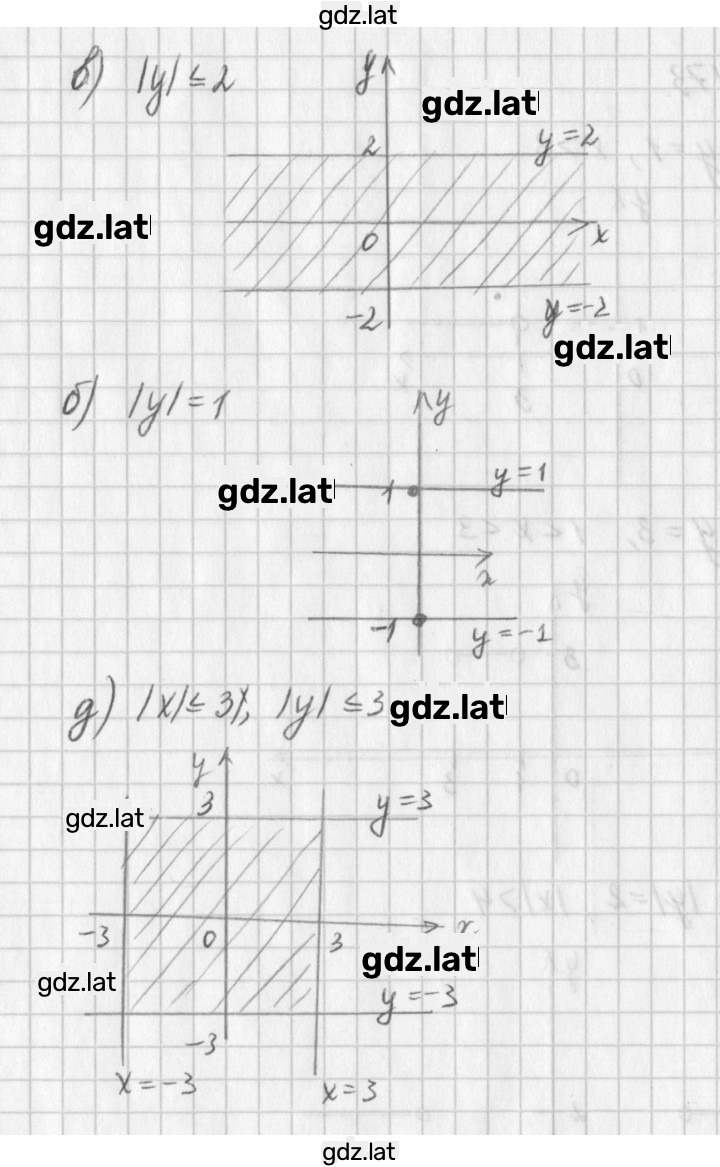 gdz.lat
в) |y| ≤ 2
y
gdz.lat
2
y = 2
gdz.lat
0
x
-2
y = -2
gdz.lat
б) |y| = 1
y
gdz.lat
1
y = 1
x
-1
y = -1
д) |x| ≤ 3, |y| ≤ 3
gdz.lat
y
3
y = 3
gdz.lat
-3
0
3
x
gdz.lat
gdz.lat
y = -3
-3
x = -3
x = 3
gdz.lat